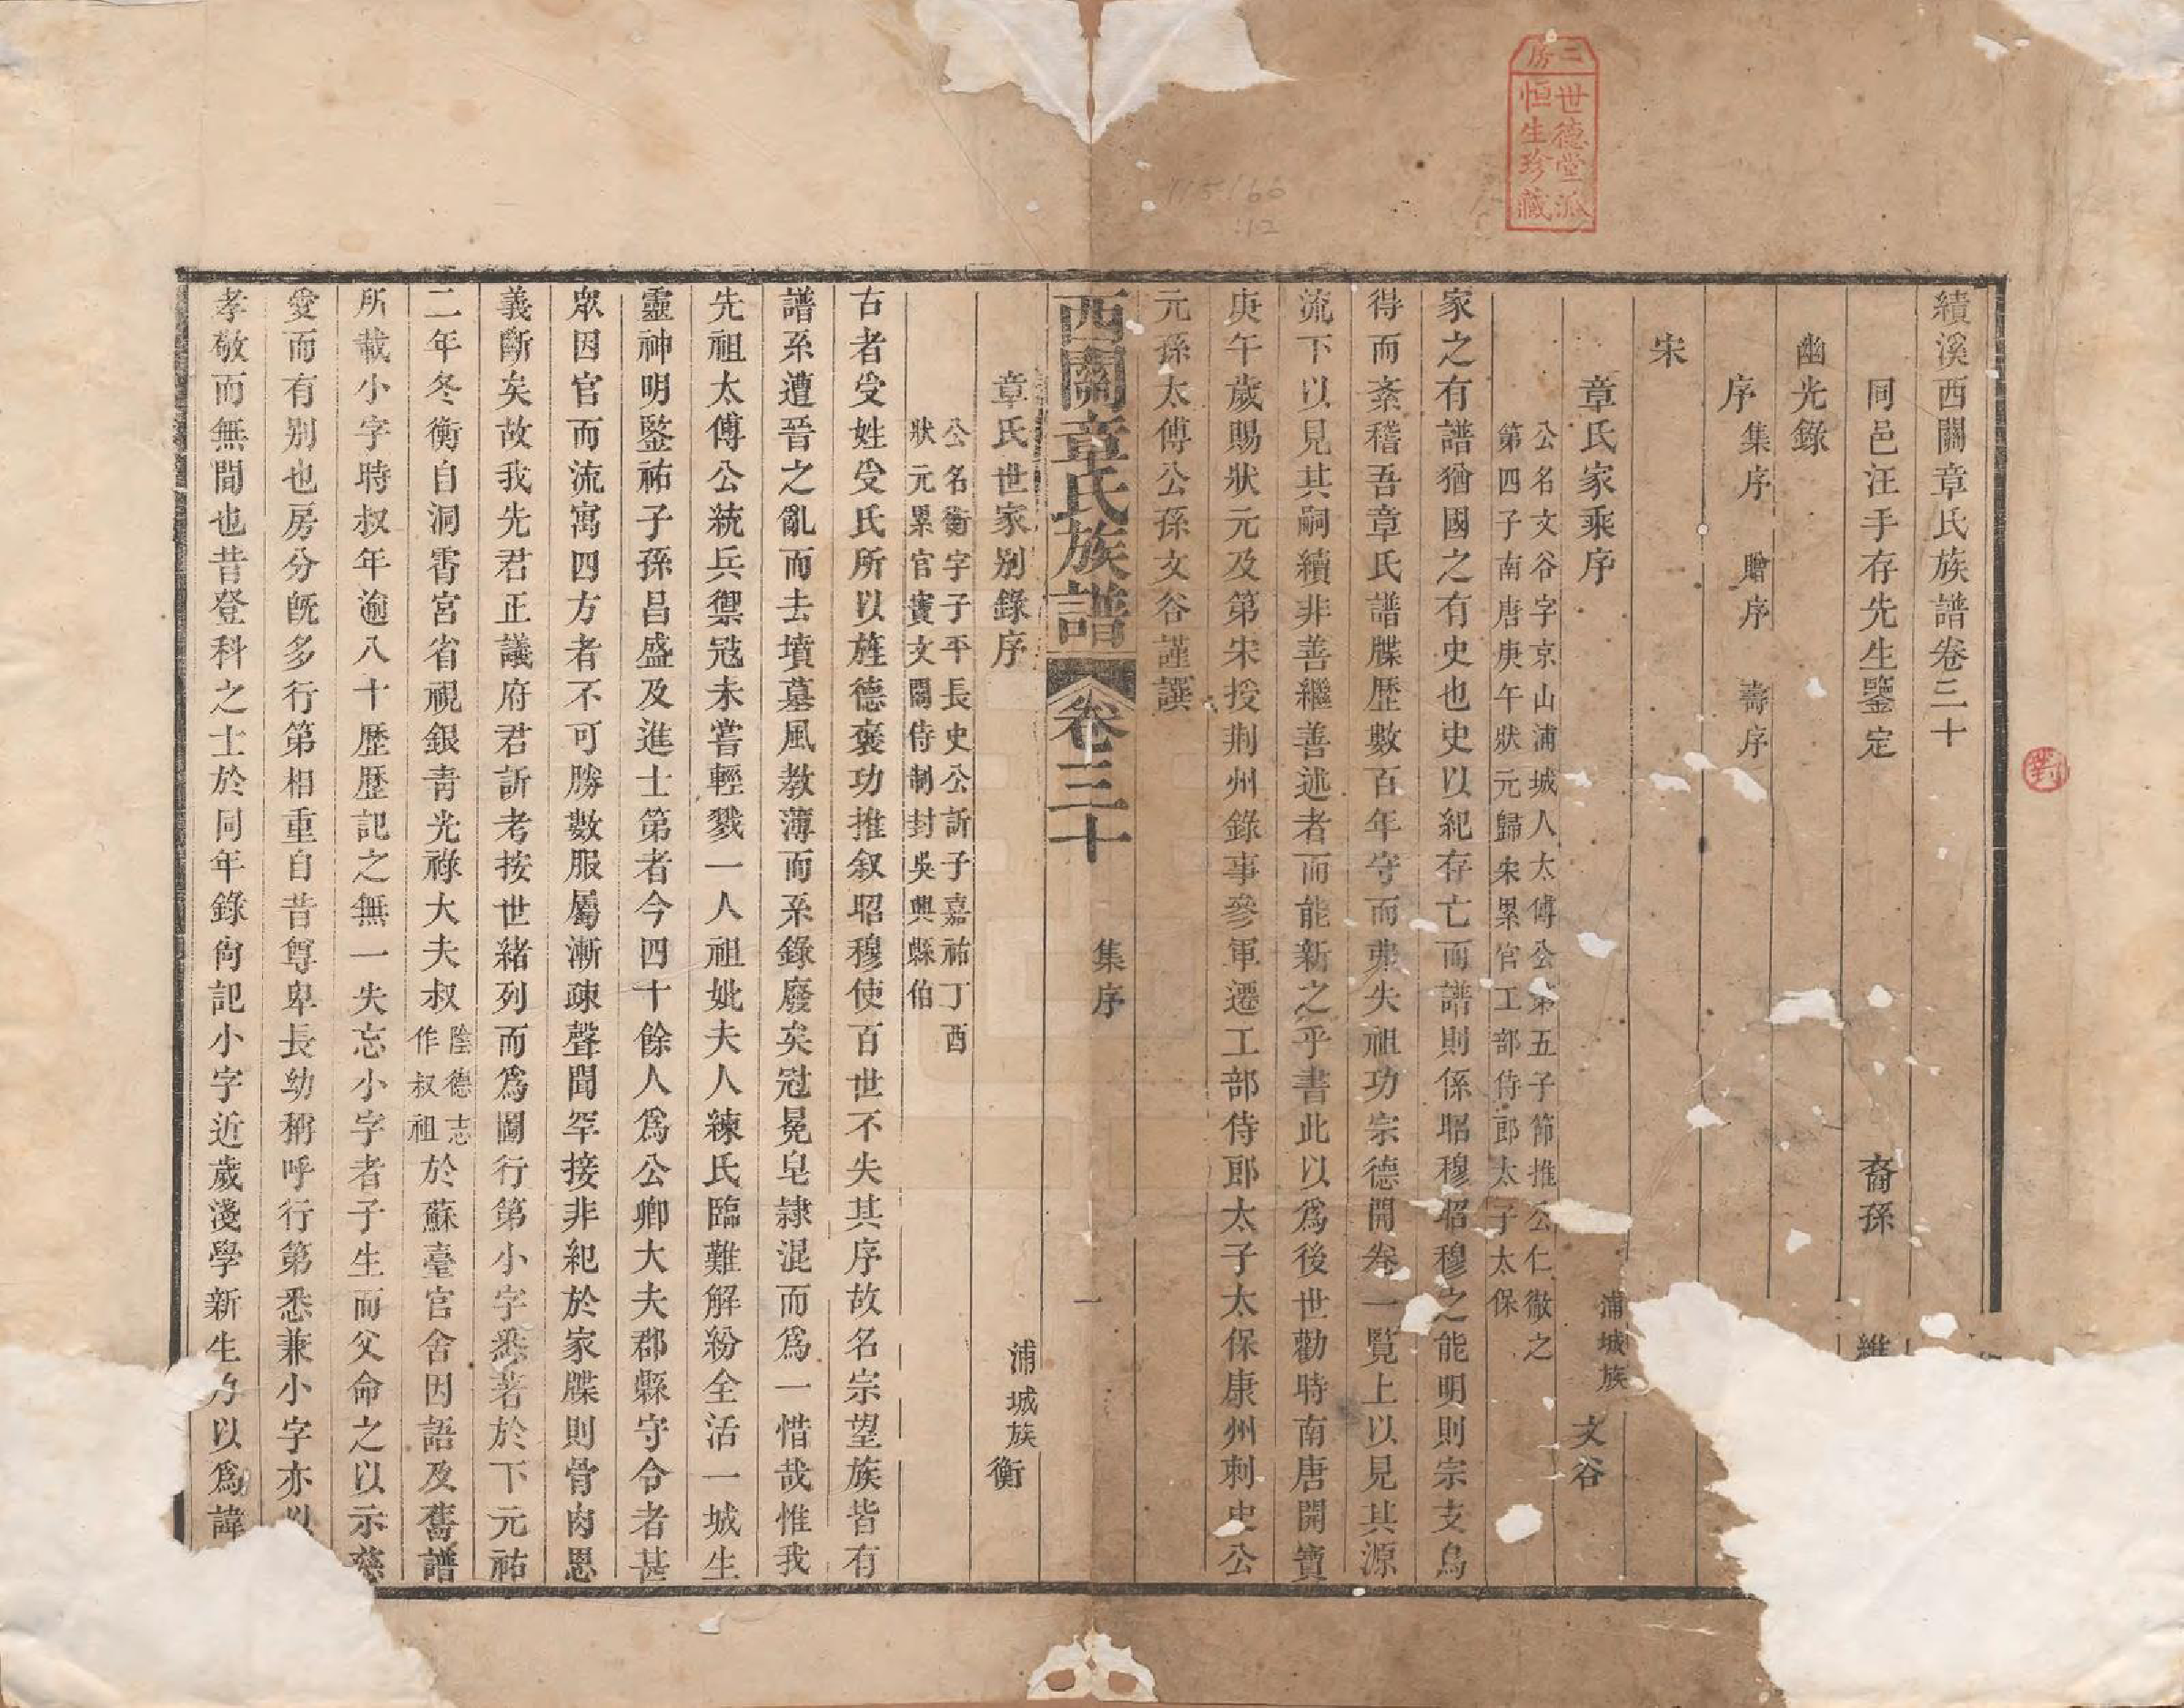 三房
世德堂派
恒生珍藏
績溪西關章氏族譜卷三十
同邑汪手存先生鑒定 裔孫 維
幽光錄
序集序 贈序 壽序
宋
章氏家乘序 浦城族 文谷
公名文谷字京山浦城人太傅公第五子節推公仁徹之
第四子南唐庚午狀元歸宋累官工部侍郎太子太保
家之有譜猶國之有史也史以紀存亡而譜則係昭穆昭穆之能明則宗支烏
得而紊稽吾章氏譜牒歷數百年守而弗失祖功宗德開卷一覽上以見其源
流下以見其嗣續非善繼善述者而能新之乎書此以為後世勸時南唐開寶
庚午歲賜狀元及第宋授荆州錄事參軍遷工部侍郎太子太保康州刺史公
元孫太傅公孫文谷謹譔
西關章氏族譜 卷三十 集序 一
章氏世家別錄序 浦城族 衡
公名衡字子平長史公訢子嘉祐丁酉
狀元累官寶文閣侍制封吳興縣伯
古者受姓受氏所以旌德褒功推叙昭穆使百世不失其序故名宗望族皆有
譜系遭晉之亂而去墳墓風教薄而系錄廢矣冠冕皂隸混而為一惜哉惟我
先祖太傅公統兵禦冦未嘗輕戮一人祖妣夫人練氏臨難解紛全活一城生
靈神明鑒祐子孫昌盛及進士第者今四十餘人為公卿大夫郡縣守令者甚
眾因官而流寓四方者不可勝數服屬漸疎聲聞罕接非紀於家牒則骨肉恩
義斷矣故我先君正議府君訢考按世緒列而為圖行第小字悉著於下元祐
二年冬衡自洞霄宮省視銀青光祿大夫叔陰德志作叔祖於蘇臺官舍因語及舊譜
所載小字時叔年逾八十歷歷記之無一失忘小字者子生而父命之以示慈
愛而有別也房分既多行第相重自昔尊卑長幼稱呼行第悉兼小字亦以
孝敬而無間也昔登科之士於同年錄尙記小字近歲淺學新生乃以為諱
對